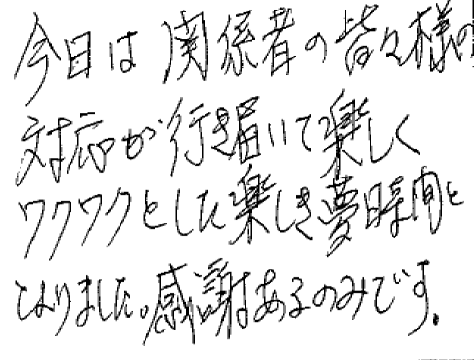 今日は関係者の皆々様の
対応が行き届いて楽しく
ワクワクとした楽しき夢時間と
なりました。感謝あるのみです。